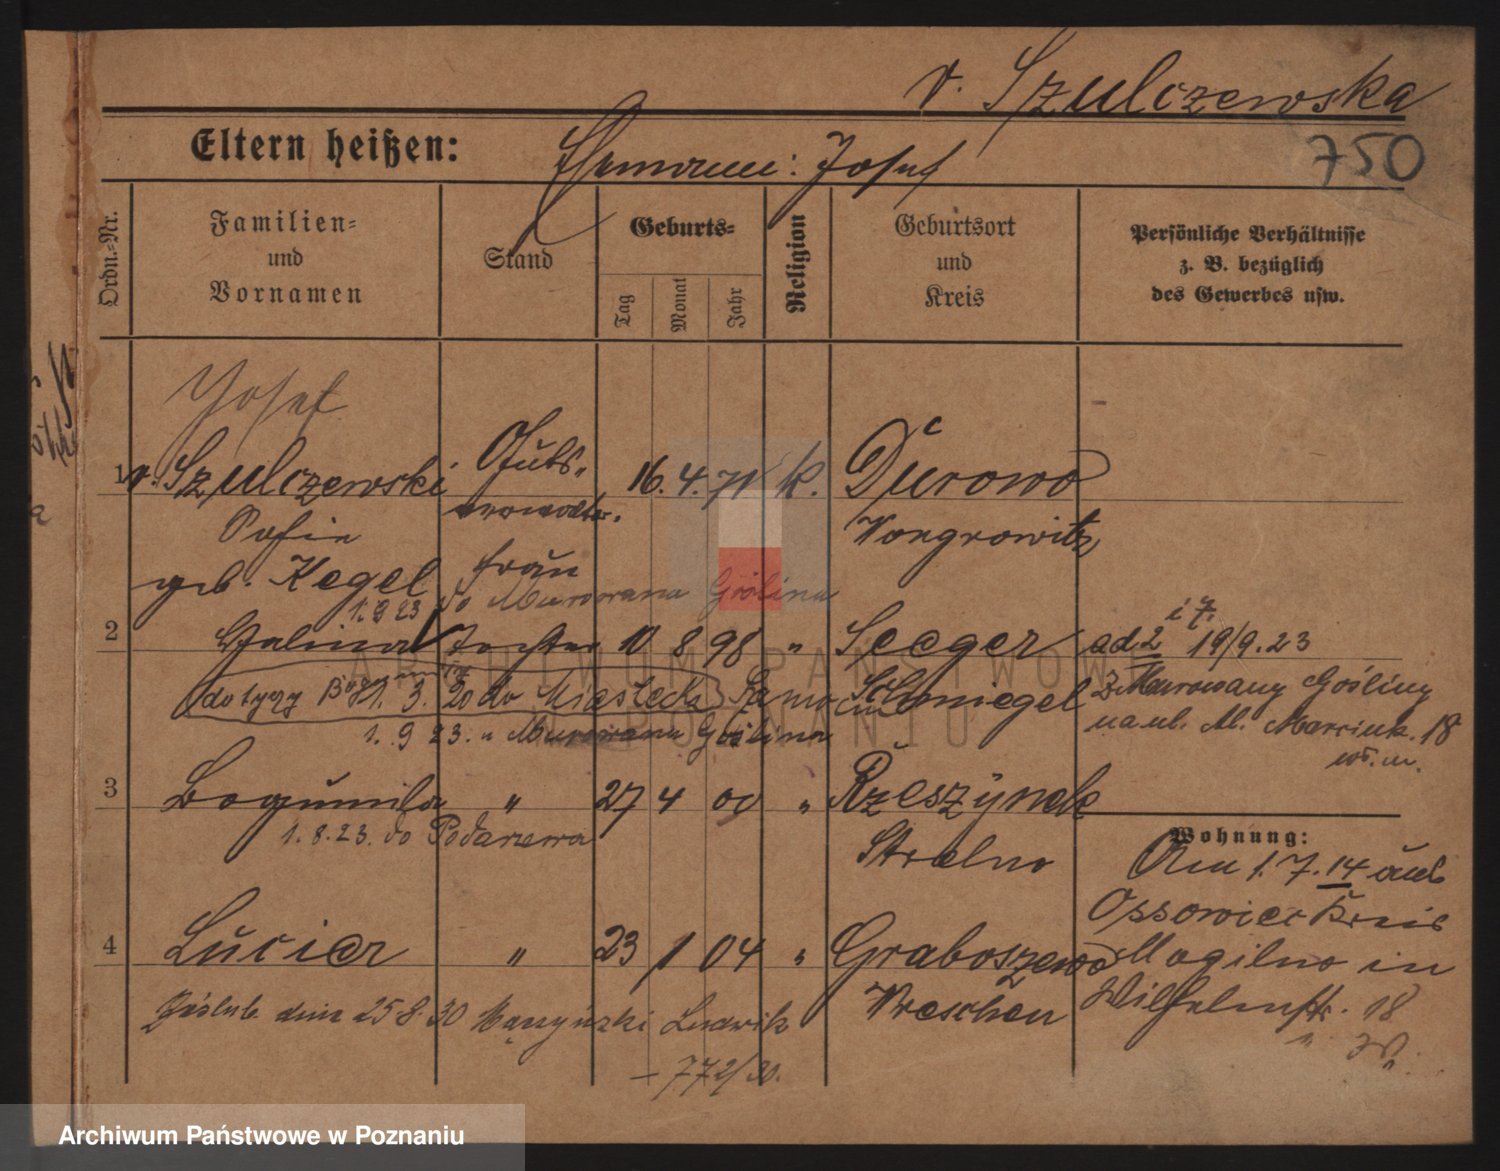 v. Szulczewska
750
Eltern heißen:
Ehemann: Josef
Ordn.-Nr.
Familien-
und
Vornamen
Stand
Geburts-
Tag
Monat
Jahr
Religion
Geburtsort
und
Kreis
Persönliche Verhältnisse
z. B. bezüglich
des Gewerbes usw.
Josef
1 v. Szulczewski Guts- 16. 4. 71 k. Durowo
Sofie verwalter. Wongrowitz
geb. Kegel Frau
1.9 23 do Murowana Goślina
2 Halina Tochter 10 8 98 " Seeger
Schmiegel
dotyczy 1. 3. 20 do Miasteczka
1. 9 23. " Murowana Goślina
i 7.
ad 2 19/9.23
z Murowany Gośliny
na ul. Marcink. 18
3 Bogumila " 27 4 00 " Rzeszynek
1.8.23. do Podarzewa
Strelno
Wohnung:
Am 1.7.14 aus
Ossowiec Kreis
Mogilno in
Wilhelmstr. 18
4 Lucier " 23 1 04 " Graboszewo
Wreschen
Zaślub. dnia 25 8. 30 Ludwik
- 772/30.
ARCHIWUM PAŃSTWOWE
W POZNANIU
Archiwum Państwowe w Poznaniu